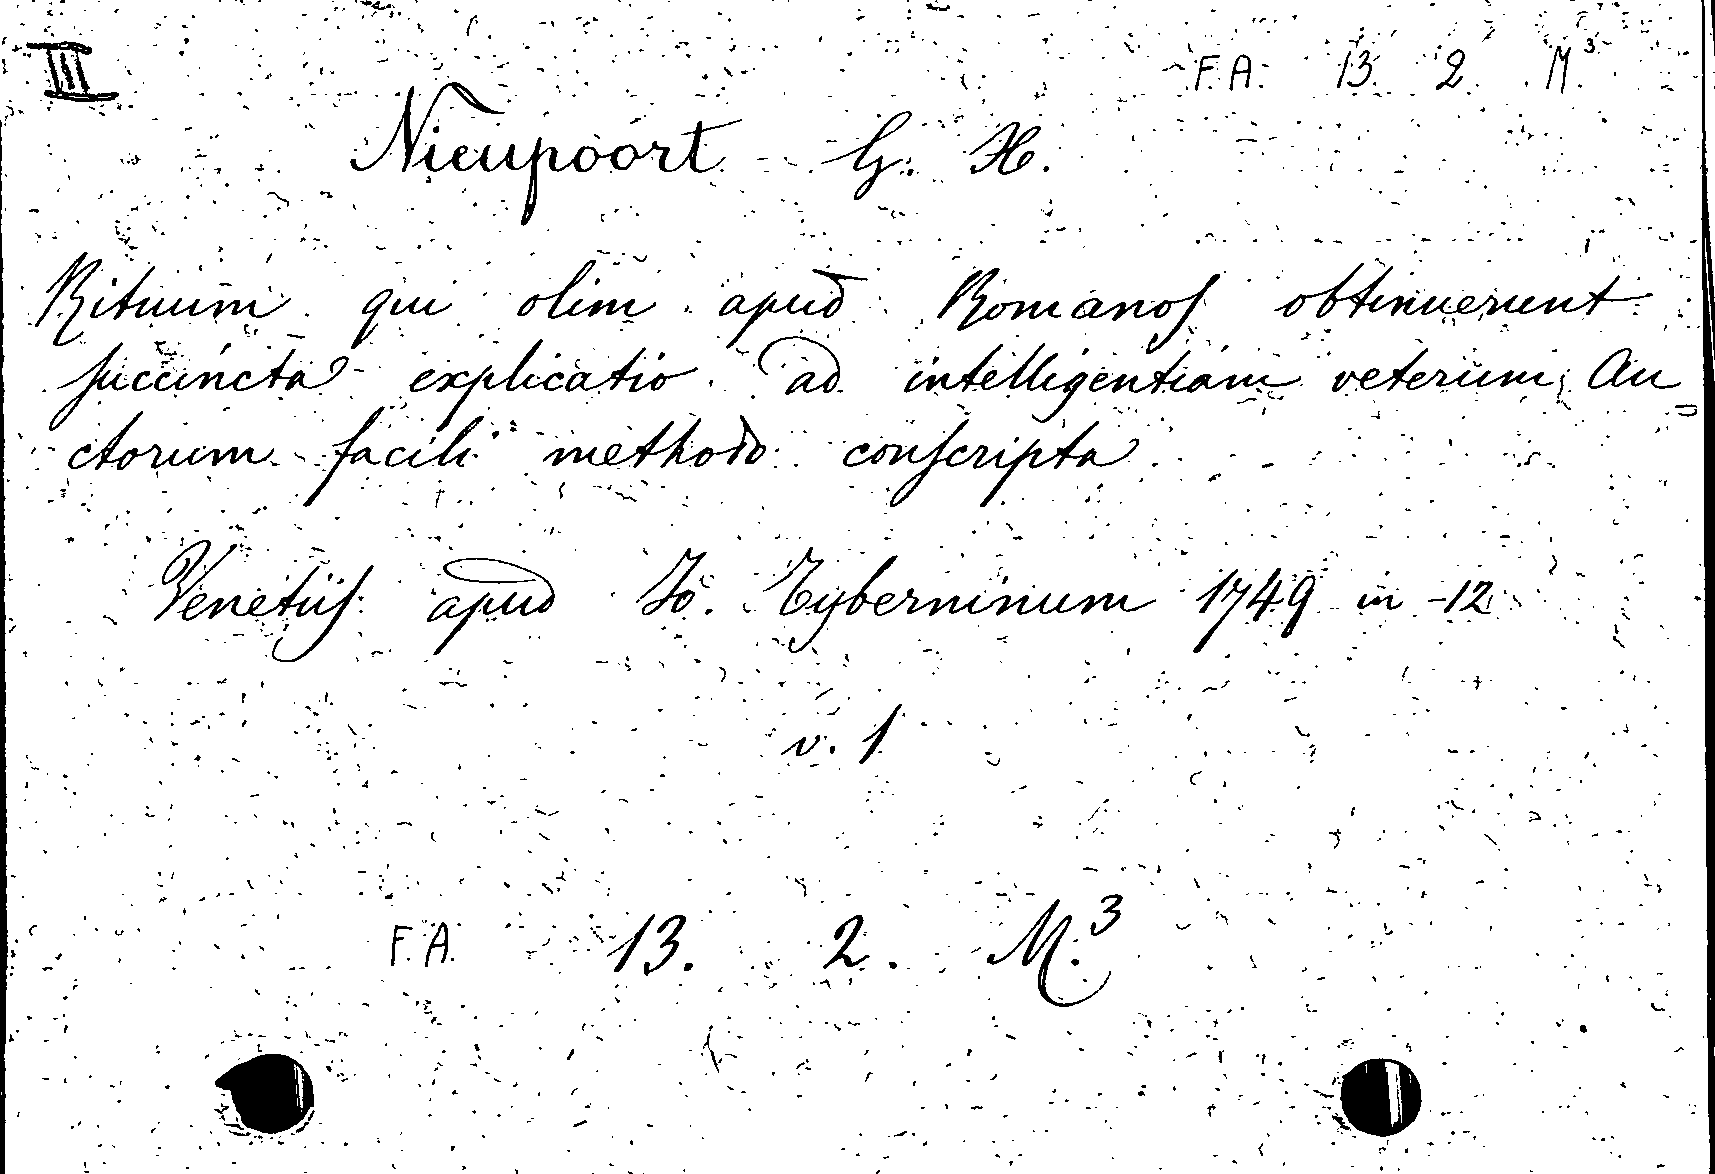 III
F. A. 13 2 M.³
Nieupoort G. H.
Rituum qui olim apud Romanos obtinuerunt
succincta explicatio ad intelligentiam veterum Au
ctorum facili methodo conscripta
Venetiis apud Io. Tyberninum 1749 in -12
v. 1
F. A. 13. 2. M.³